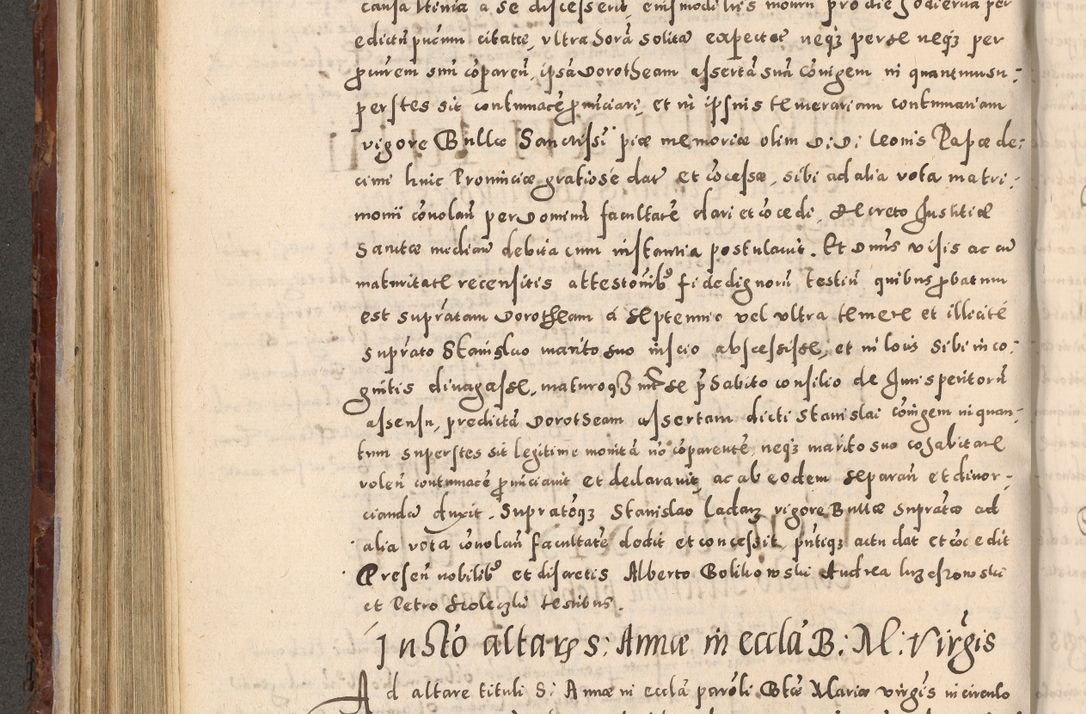 causa Itinia a se discesserit eiusmodi litis motum pro die Hodierna per
edictū publicum citatæ, vltra horā solitā expectet neqȝ per se neqȝ per
p̱curem suū cōparen̄, ipsā Dorotheam assertā suā cōiugem in quantum su-
perstes sit contumacē p̱nunciari, et in ipsius temerariam contumatiam
vigore Bullæ Sanctissi piæ memoriæ olim D: D: Leonis Papæ de:
cimi huic Prouinciæ gratiose datæ et cōcessæ, sibi ad alia vota matri:
monii cōuolan̄ per Dominū facultatē dari et cōcedi, Decreto Justitiæ
Sanctæ median̄ debita cum instantia postulauit. Et Dnus visis ac cū
maturitate recensitis attestōnibȝ fidedignorū testiū quibus p̱batum
est supratam Dorotheam a septennio vel vltra temere et illicitē
suprato Stanislao marito suo inscio abscessisse, et in locis sibi inco:
gnitis diuagasse, maturoqȝ int se p̄habito consilio de Iurisperitorū
assensu, predictā Dorotheam assertam dicti Stanislai cōiugem in quan-
tum superstes sit legitime monitā nō cōparentē, neqȝ marito suo cohabitare
volen̄ contumacē p̱nunciauit et declarauit, ac ab eodem separan̄ et diuor-
ciandā duxit. Supratoqȝ Stanislao Ladarz vigore Bullæ supratæ ad
alia vota cōuolan̄ facultatē dedit et concessit, p̄ntiqȝ actu dat et cōcedit
Presen̄ nobilibȝ et discretis Alberto Bolikowski Andrea
et Petro testibus.
Insto altaris S: Annæ in eccla B: M: Virgis
Ad altare tituli S: Annæ in ecclā parōli Btæ Mariæ virgis in circulo